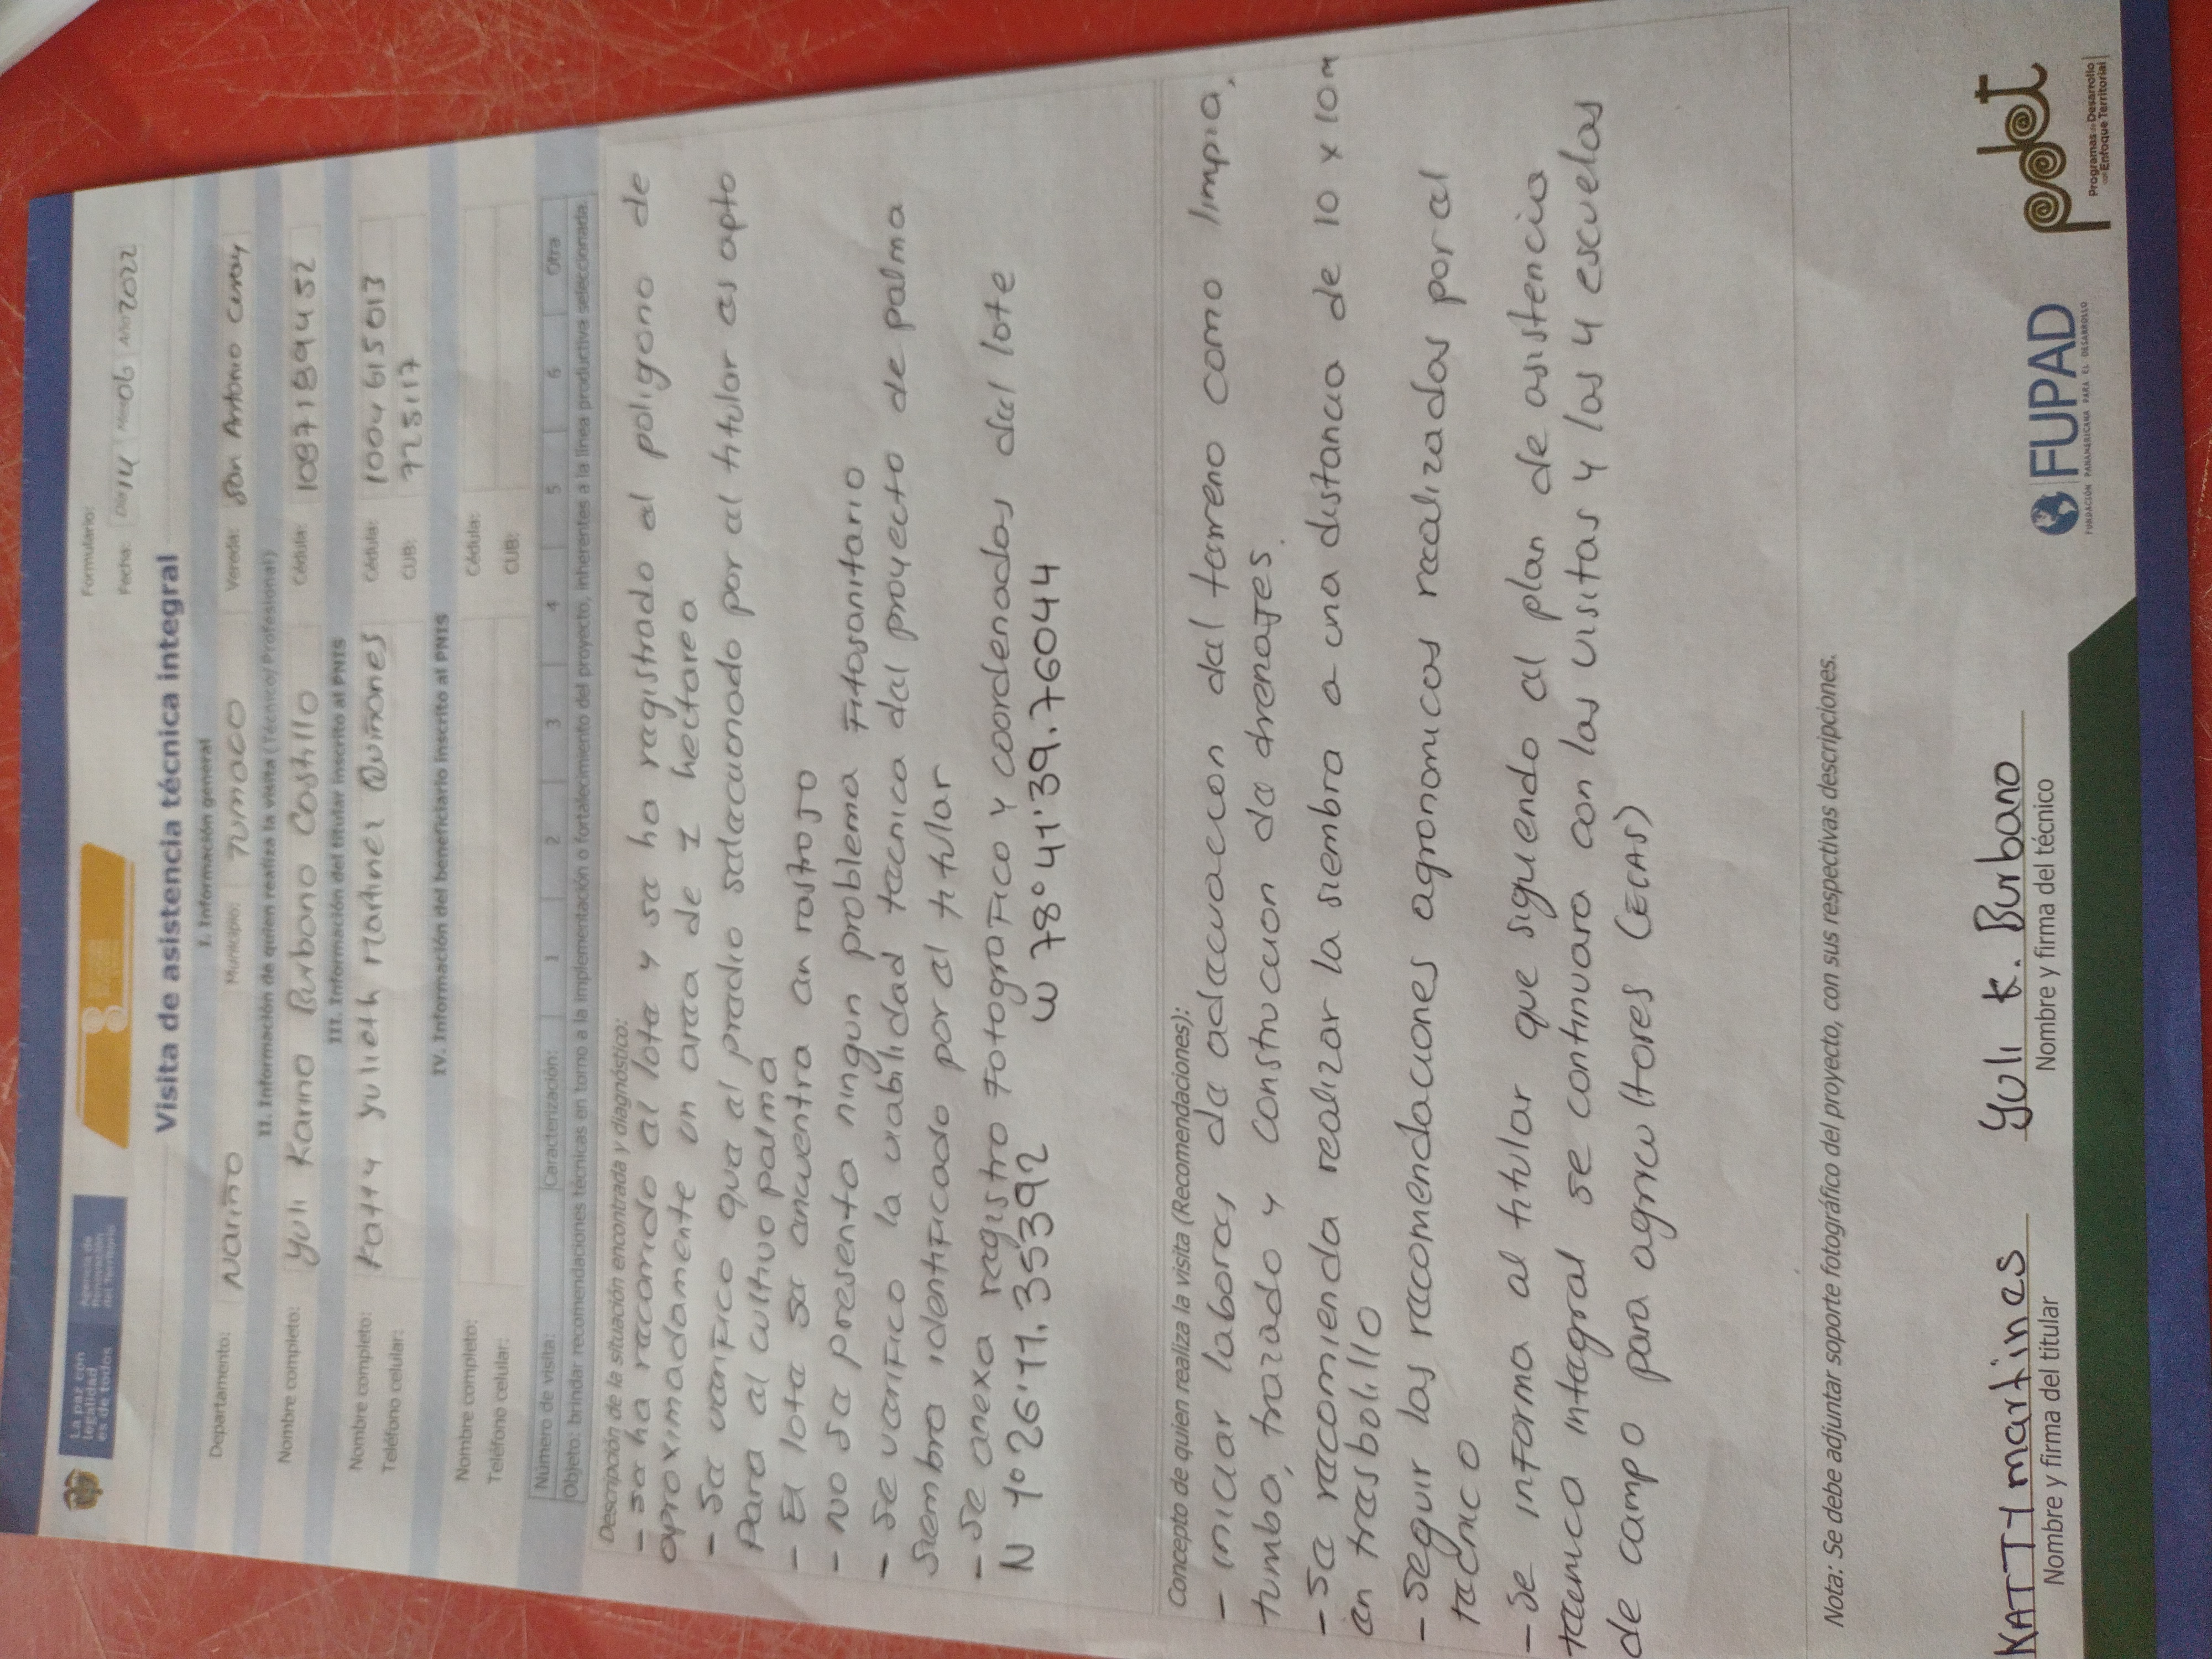 La paz con
legalidad
es de todos
Agencia de
Renovación
del Territorio
Formulario:
Fecha: Día 14 Mes 06 Año 2022
Visita de asistencia técnica integral
I. Información general
Departamento: Nariño Municipio: Tumaco Vereda: San Antonio curay
II. Información de quien realiza la visita (Técnico/Profesional)
Nombre completo: Yuli Karina Burbano Castillo Cédula: 1087189452
III. Información del titular inscrito al PNIS
Nombre completo: Katty Yulieth Martinez Quiñones Cédula: 1004615013
Teléfono celular: CUB: 725117
IV. Información del beneficiario inscrito al PNIS
Nombre completo: Cédula:
Teléfono celular: CUB:
Número de visita: Caracterización: 1 2 3 4 5 6 Otra
Objeto: brindar recomendaciones técnicas en torno a la implementación o fortalecimiento del proyecto, inherentes a la línea productiva seleccionada.
Descripción de la situación encontrada y diagnóstico:
- se ha recorrido el lote y se ha registrado el poligono de
aproximadamente un area de 1 hectarea
- Se verifico que el predio seleccionado por el titular es apto
para el cultivo palma
- El lote se encuentra en rastrojo
- No se presenta ningun problema Fitosanitario
- Se verifico la viabilidad tecnica del proyecto de palma
siembra identificado por el titular
- Se anexa registro fotografico y coordenadas del lote
N 1°26'11.35392 W 78°41'39.76044
Concepto de quien realiza la visita (Recomendaciones):
- iniciar labores de adecuacion del terreno como limpia,
tumba, trazado y construccion de drenajes.
- Se recomienda realizar la siembra a una distancia de 10 x 10m
en tresbolillo
- Seguir las recomendaciones agronomicas realizadas por el
tecnico
- Se informa al titular que siguiendo el plan de asistencia
tecnica integral se continuara con las visitas y las 4 escuelas
de campo para agricultores (ECAS)
Nota: Se debe adjuntar soporte fotográfico del proyecto, con sus respectivas descripciones.
KATTY martines
Nombre y firma del titular
Yuli K. Burbano
Nombre y firma del técnico
FUPAD
FUNDACIÓN PANAMERICANA PARA EL DESARROLLO
pdet
Programas de Desarrollo
con Enfoque Territorial